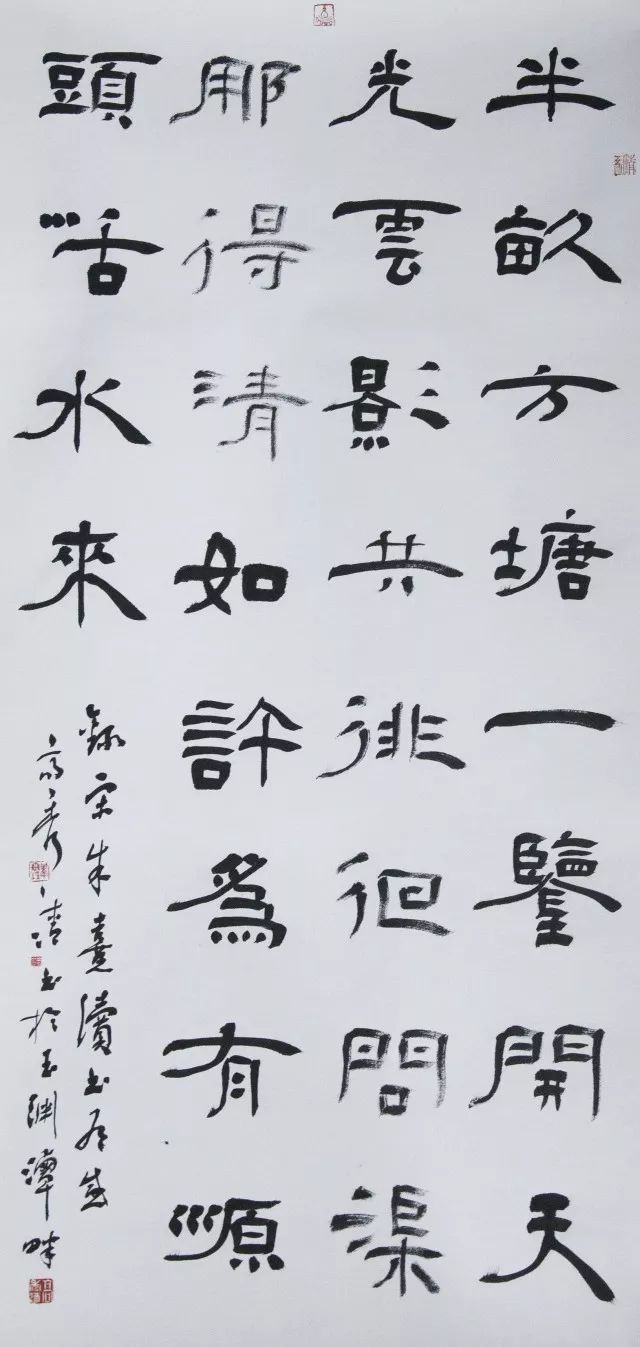 半畝方塘一鑒開天
光雲影共徘徊問渠
那得清如許爲有源
頭活水來
錄宋朱熹讀书有感
高秀清书於玉淵潭畔